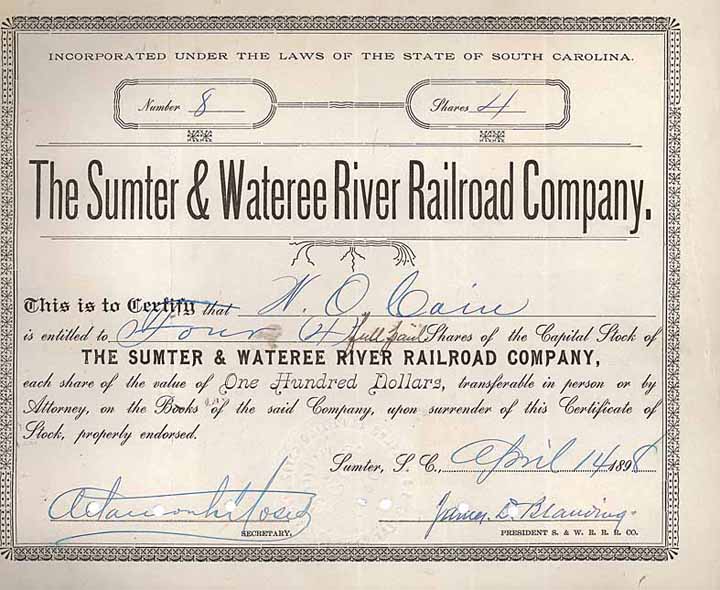 INCORPORATED UNDER THE LAWS OF THE STATE OF SOUTH CAROLINA.
Number 8 Shares 4
The Sumter & Wateree River Railroad Company.
This is to Certify that W. O. Cain
is entitled to Four (4) full paid Shares of the Capital Stock of
THE SUMTER & WATEREE RIVER RAILROAD COMPANY,
each share of the value of One Hundred Dollars, transferable in person or by
Attorney, on the Books of the said Company, upon surrender of this Certificate of
Stock, properly endorsed.
Sumter, S. C., April 14 1898
James D. Blanding
SECRETARY. PRESIDENT S. & W. R. R. R. CO.